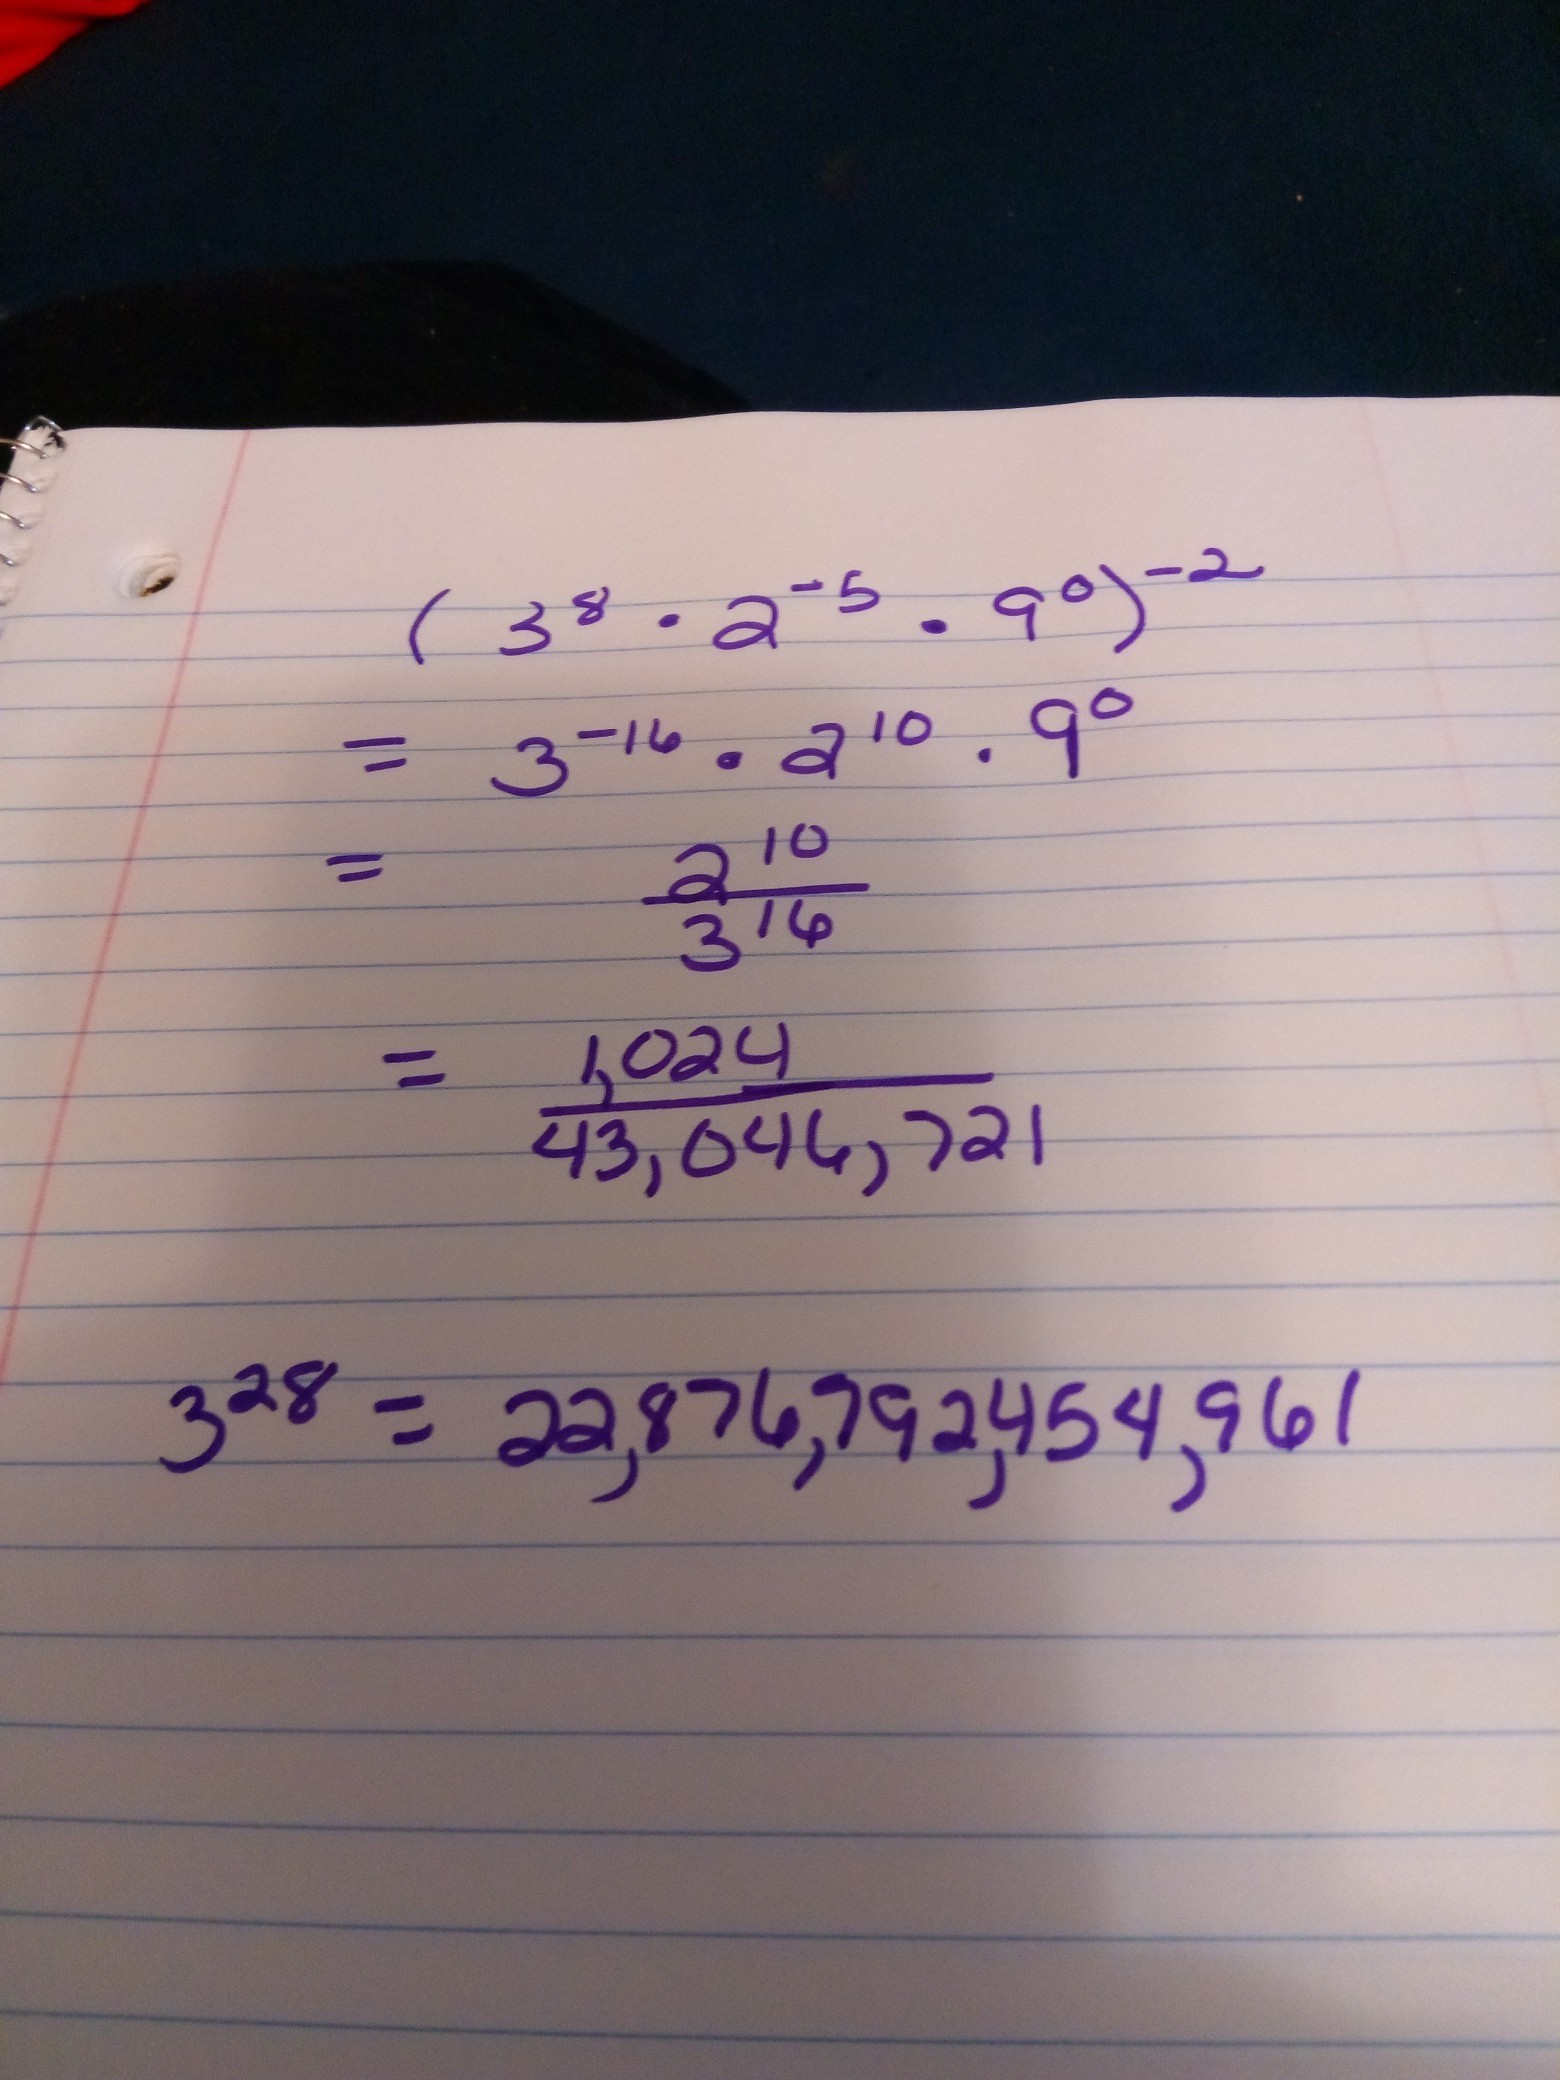 (3⁸ · 2⁻⁵ · 9⁰)⁻²
= 3⁻¹⁶ · 2¹⁰ · 9⁰
= 2¹⁰ / 3¹⁶
= 1,024 / 43,046,721
3²⁸ = 22,876,792,454,961